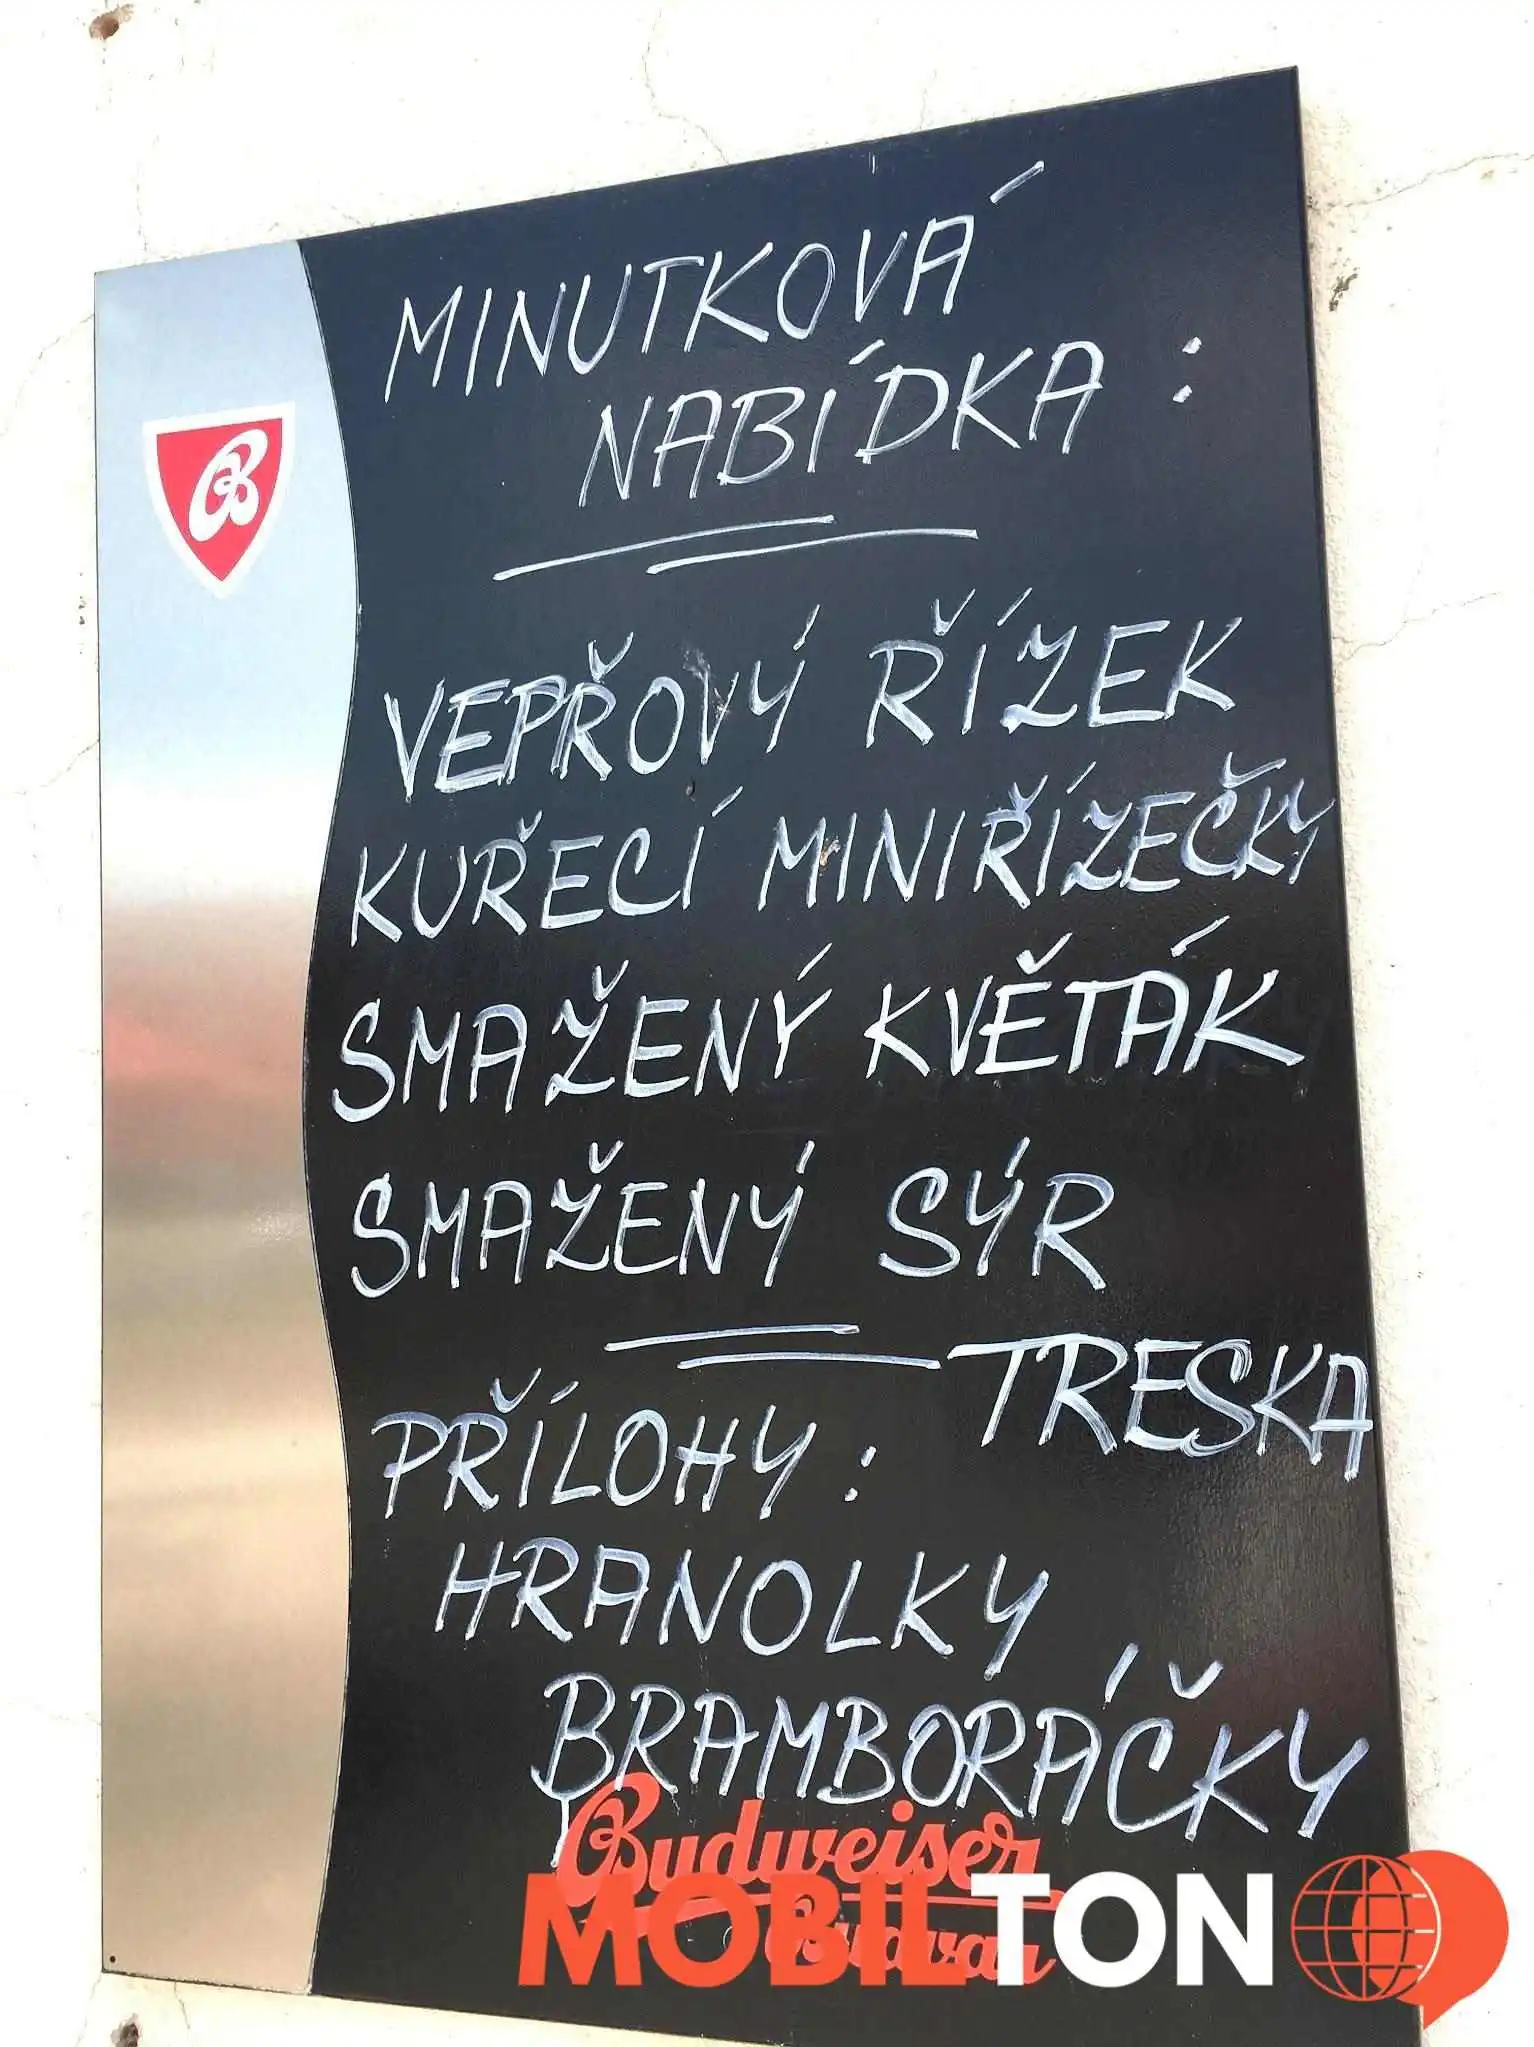 MINUTKOVÁ
NABÍDKA :
VEPŘOVÝ ŘÍZEK
KUŘECÍ MINIŘÍZEČKY
SMAŽENÝ KVĚTÁK
SMAŽENÝ SÝR
TRESKA
PŘÍLOHY :
HRANOLKY
BRAMBORÁČKY
Budweiser
Budvar
MOBILTON